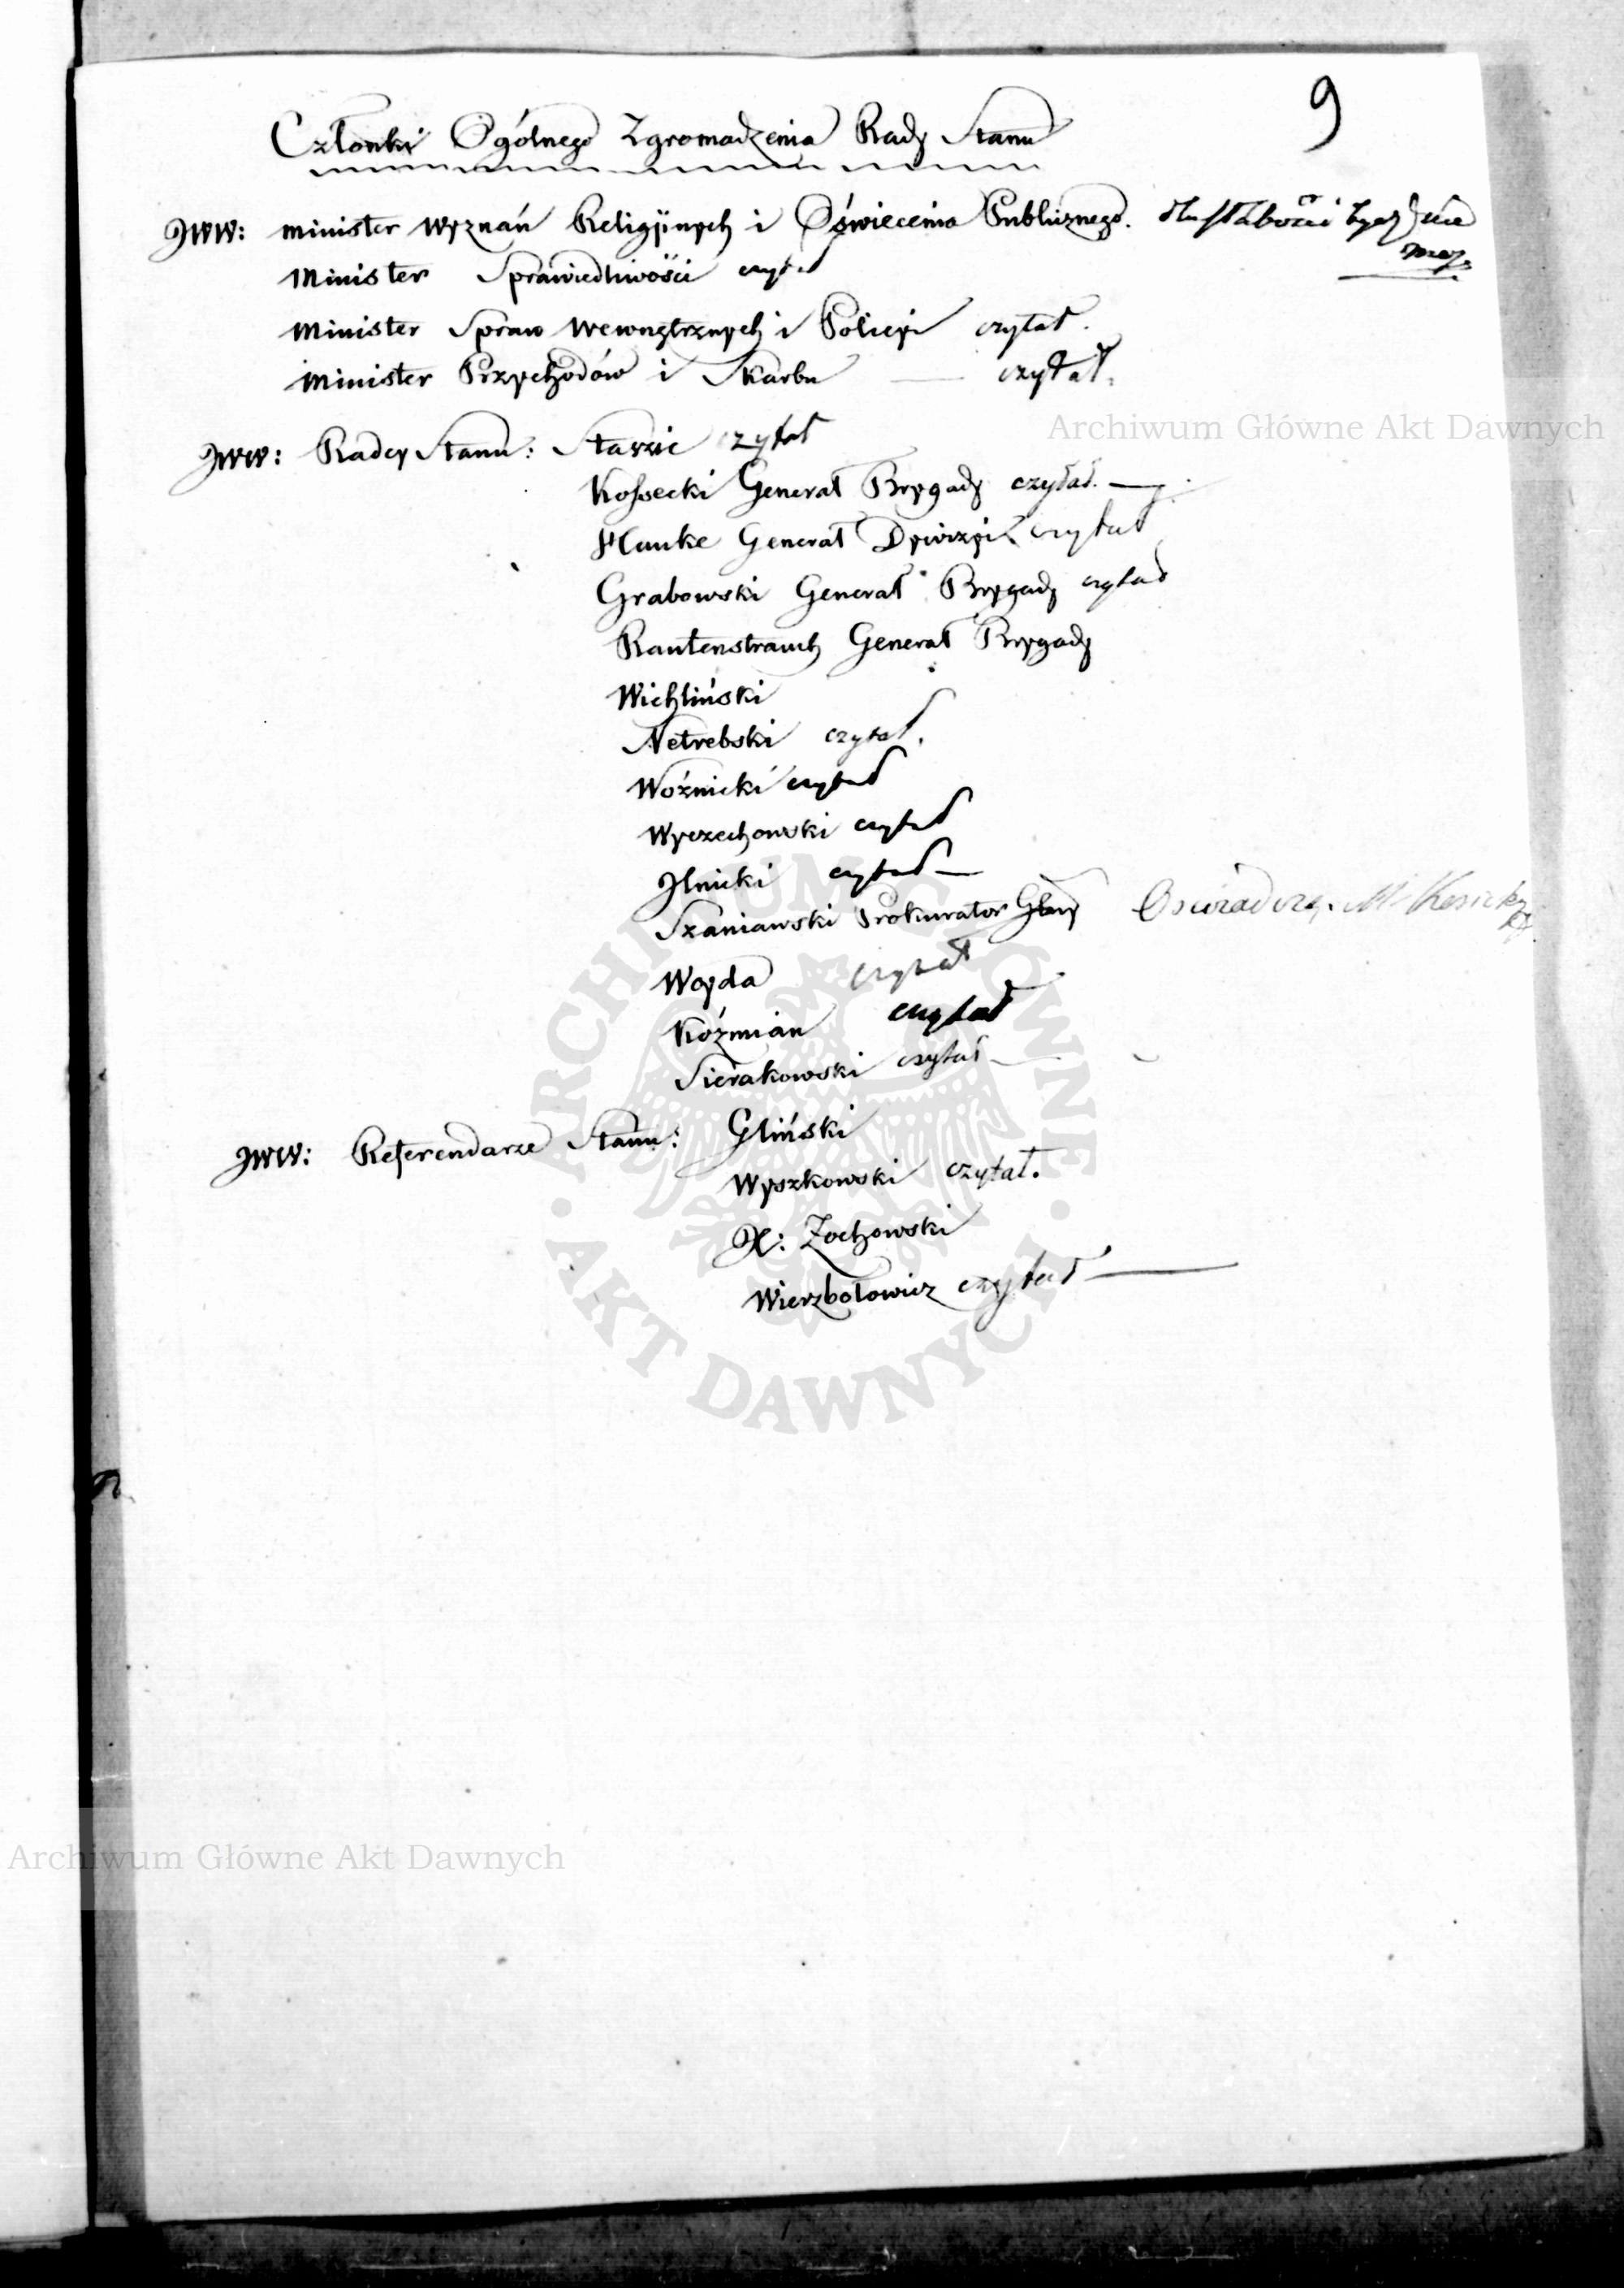 9
Członki Ogólnego Zgromadzenia Rady Stanu
JWW: Minister Wyznań Religijnych i Oświecenia Publicznego. dla słabości być nie
moż.
Minister Sprawiedliwości czytał
Minister Spraw Wewnętrznych i Policyi czytał.
Minister Przychodów i Skarbu — czytał.
Archiwum Główne Akt Dawnych
JWW: Radcy Stanu: Staszic czytał
Kossecki Generał Brygady czytał. —
Hauke Generał Dywizyi czytał
Grabowski Generał Brygady czytał
Rautenstrauch Generał Brygady
Wichliński
Netrebski czytał.
Woźnicki czytał
Wyczechowski czytał
Ilnicki czytał —
Szaniawski Prokurator Głny Oświadczy.
Woyda czytał
Koźmian czytał
Sierakowski czytał —
JWW: Referendarze Stanu: Gliński
Wyszkowski czytał.
X: Żochowski
Wierzbołowicz czytał —
ARCHIWUM GŁÓWNE • AKT DAWNYCH •
Archiwum Główne Akt Dawnych